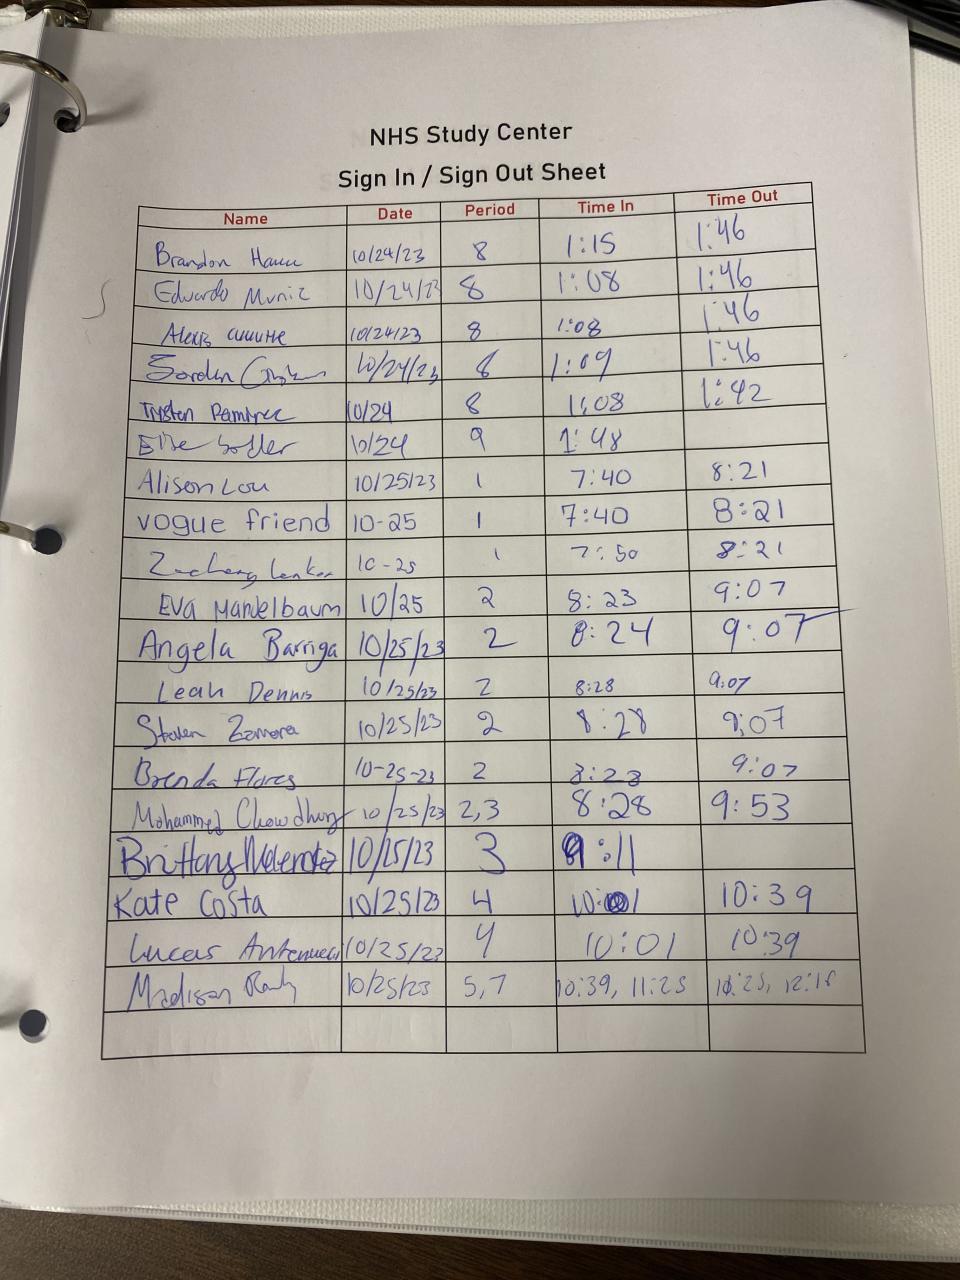 NHS Study Center
Sign In / Sign Out Sheet
Name Date Period Time In Time Out
Brandon 10/24/23 8 1:15 1:46
Eduardo Muniz 10/24/23 8 1:08 1:46
Alexis 10/24/23 8 1:08 1:46
10/24/23 8 1:09 1:46
Trysten Ramirez 10/24 8 1:08 1:42
10/24 9 1:48
Alison Lou 10/25/23 1 7:40 8:21
vogue friend 10-25 1 7:40 8:21
10-25 1 7:50 8:21
Eva Mandelbaum 10/25 2 8:23 9:07
Angela Barriga 10/25/23 2 8:24 9:07
Leah Dennis 10/25/23 2 8:28 9:07
Steven Zamora 10/25/23 2 8:28 9:07
Brenda Flores 10-25-23 2 8:23 9:07
Mohammed Chowdhury 10/25/23 2,3 8:28 9:53
Brittany Melendez 10/25/23 3 9:11
Kate Costa 10/25/23 4 10:01 10:39
Lucas Antenucci 10/25/23 4 10:01 10:39
Madison 10/25/23 5,7 10:39, 11:25 12:18